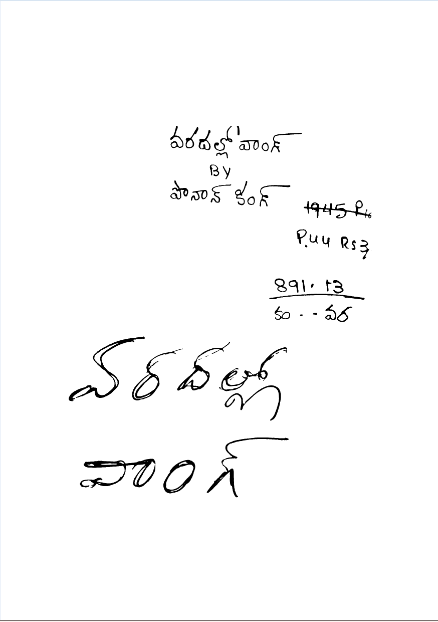 వరదల్లో వాంగ్
BY
హెనాన్ కింగ్
1945 P.
P.44 Rs 3
891.13
కిం . . వర
వరదల్లో
వాంగ్